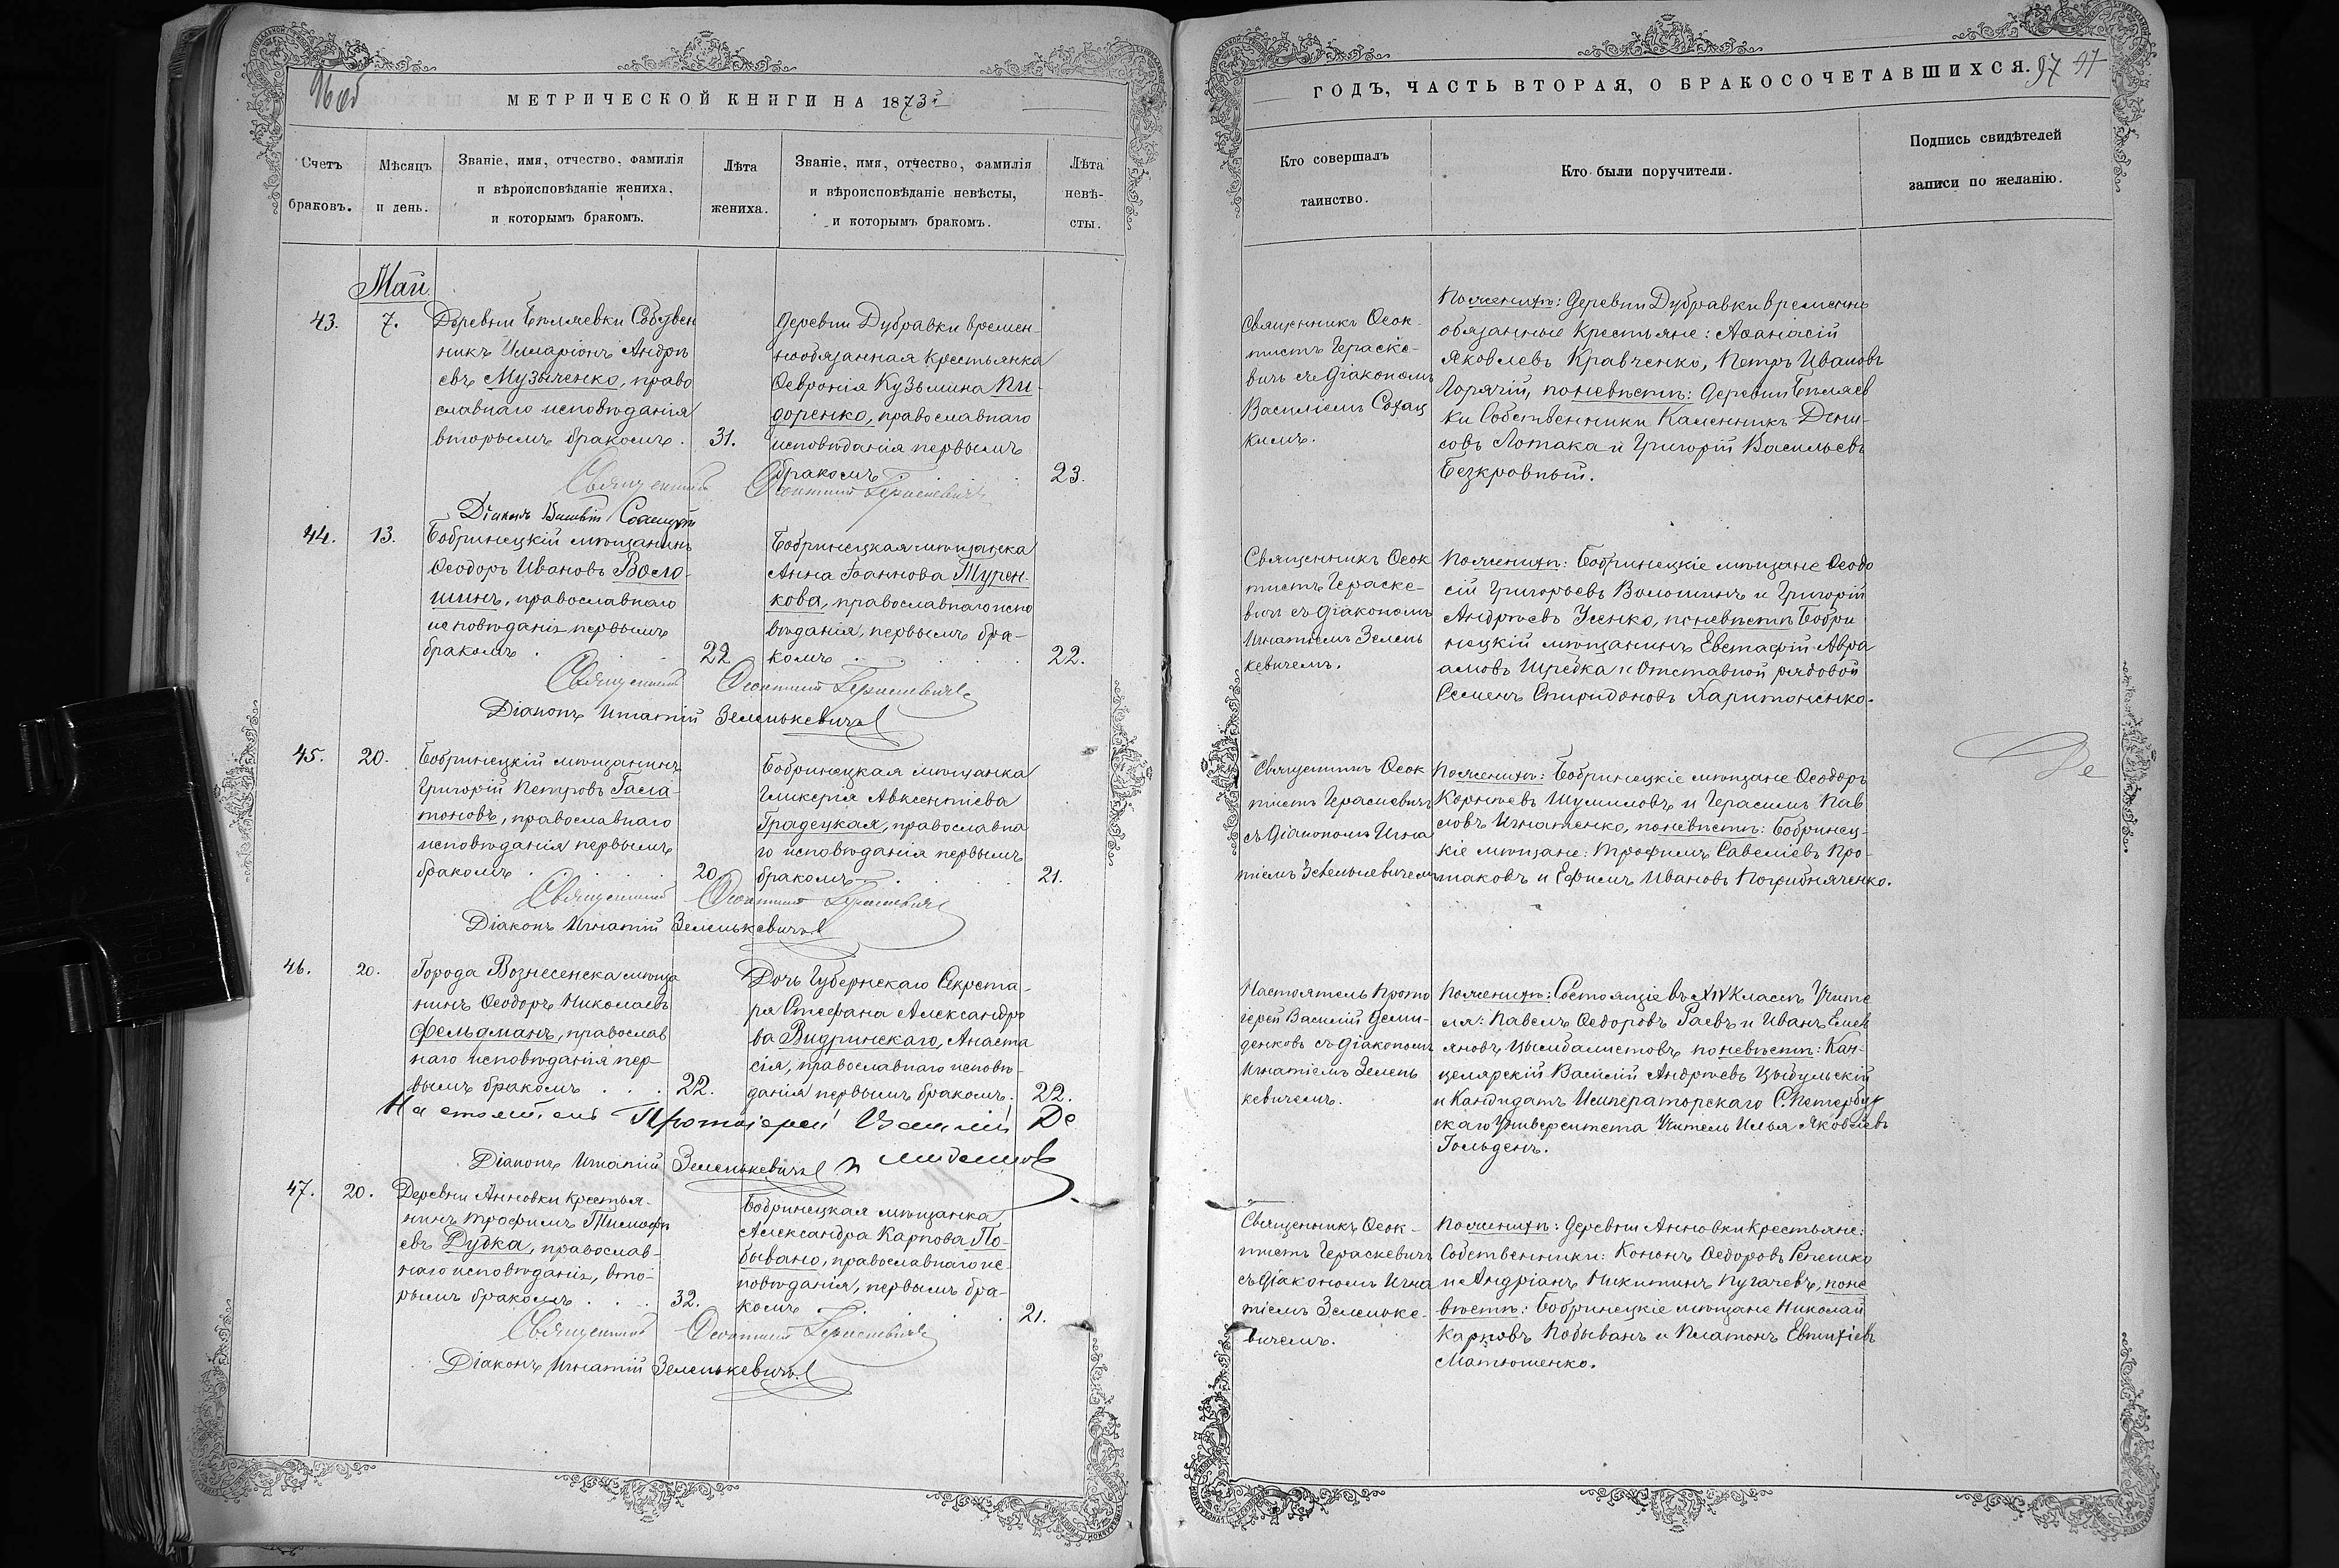 96 об
МЕТРИЧЕСКОЙ КНИГИ НА 1873й
Счетъ
браковъ.
Мѣсяцъ
и день.
Званіе, имя, отчество, фамилія
и вѣроисповѣданіе жениха,
и которымъ бракомъ.
Лѣта
жениха.
Званіе, имя, отчество, фамилія
и вѣроисповѣданіе невѣсты,
и которымъ бракомъ.
Лѣта
невѣ-
сты.
Май
43.
7.
Деревни Бѣляевки Собствен
никъ Илларіонъ Андрѣ
евъ Музыченко, право
славнаго исповѣданія
вторымъ бракомъ.
31.
Деревни Дубравки времен-
нообязанная крестьянка
Ѳевронія Кузьмина Пи-
доренко, православнаго
исповѣданія первымъ
бракомъ
23.
Священникъ Ѳеоктистъ Гераскевичъ
Діаконъ Василій
44.
13.
Бобринецкій мѣщанинъ
Ѳеодоръ Ивановъ Воло-
шинъ, православнаго
исповѣданія первымъ
бракомъ
22
Бобринецкая мѣщанка
Анна Іоаннова Турен-
кова, православнаго испо
вѣданія, первымъ бра-
комъ
22.
Священникъ Ѳеоктистъ Гераскевичъ
Діаконъ Игнатій Зеленькевичъ
45.
20.
Бобринецкій мѣщанинъ
Григорій Петровъ Гала-
тоновъ, православнаго
исповѣданія первымъ
бракомъ
20
Бобринецкая мѣщанка
Гликерія Авксентіева
Градецкая, православна
го исповѣданія первымъ
бракомъ
21.
Священникъ Ѳеоктистъ Гераскевичъ
Діаконъ Игнатій Зеленькевичъ
46.
20.
Города Вознесенска мѣща
нинъ Ѳеодоръ Николаевъ
Фельдманъ, православ
наго исповѣданія пер-
вымъ бракомъ
22.
Дочь Губернскаго Секрета-
ря Стефана Александро
ва Видринскаго, Анаста
сія, православнаго исповѣ-
данія первымъ бракомъ.
22.
Настоятель Протоіерей Василій Де
мидениовъ
Діаконъ Игнатій Зеленькевичъ
47.
20.
Деревни Анновки крестья-
нинъ Трофимъ Тимоѳѣ
евъ Дудка, православ-
наго исповѣданія, вто-
рымъ бракомъ
32.
Бобринецкая мѣщанка
Александра Карпова По-
бывано, православнаго ис
повѣданія, первымъ бра-
комъ
21.
Священникъ Ѳеоктистъ Гераскевичъ
Діаконъ Игнатій Зеленькевичъ
ГОДЪ, ЧАСТЬ ВТОРАЯ, О БРАКОСОЧЕТАВШИХСЯ.
97
Кто совершалъ
таинство.
Кто были поручители.
Подпись свидѣтелей
записи по желанію.
Священникъ Ѳеок-
тистъ Гераске-
вичъ съ Діакономъ
Василіемъ Сохац
кимъ.
По женихѣ: Деревни Дубравки временно
обязанные Крестьяне: Аѳанасій
Яковлевъ Кравченко, Петръ Ивановъ
Горячій, по невѣстѣ: Деревни Бѣляев
ки Собственники Калинникъ Дени-
совъ Лотака и Григорій Васильевъ
Безкровный.
Священникъ Ѳеок
тистъ Гераске-
вичъ съ Діакономъ
Игнатіемъ Зелень
кевичемъ.
По женихѣ: Бобринецкіе мѣщане Ѳеодо
сій Григорьевъ Волошинъ и Григорій
Андрѣевъ Усенко, по невѣстѣ Бобри
нецкій мѣщанинъ Евстафій Авра
амовъ Шредка и Отставной рядовой
Семенъ Спиридоновъ Харитоненко.
Священникъ Ѳеок
тистъ Гераскевичъ
съ Діакономъ Игна
тіемъ Зеленькевичемъ
По женихѣ: Бобринецкіе мѣщане Ѳеодоръ
Корнѣевъ Шумиловъ и Герасимъ Пав
ловъ Игнатенко, по невѣстѣ: Бобринец-
кіе мѣщане: Трофимъ Савеліевъ Про-
таковъ и Ефимъ Ивановъ Погрибняченко.
Де
Настоятель Прото
іерей Василій Деми-
денковъ съ Діакономъ
Игнатіемъ Зелень
кевичемъ.
По женихѣ: Состоящіе въ XIV Классѣ Учите
ля: Павелъ Ѳедоровъ Гаевъ и Иванъ Емел
яновъ Цымбалистовъ по невѣстѣ: Кан-
целярскій Василій Андрѣевъ Цыбульскій
и Кандидатъ Императорскаго С.Петербур
скаго Университета Учитель Илья Яковлевъ
Гольденъ.
Священникъ Ѳеок-
тистъ Гераскевичъ
съ Діакономъ Игна
тіемъ Зеленьке-
вичемъ.
По женихѣ: Деревни Анновки Крестьяне:
Собственники: Кононъ Ѳедоровъ Репешко
и Андріанъ Никитинъ Пугачевъ, по не
вѣстѣ: Бобринецкіе мѣщане Николай
Карповъ Побыванъ и Платонъ Евтихіевъ
Матюшенко.